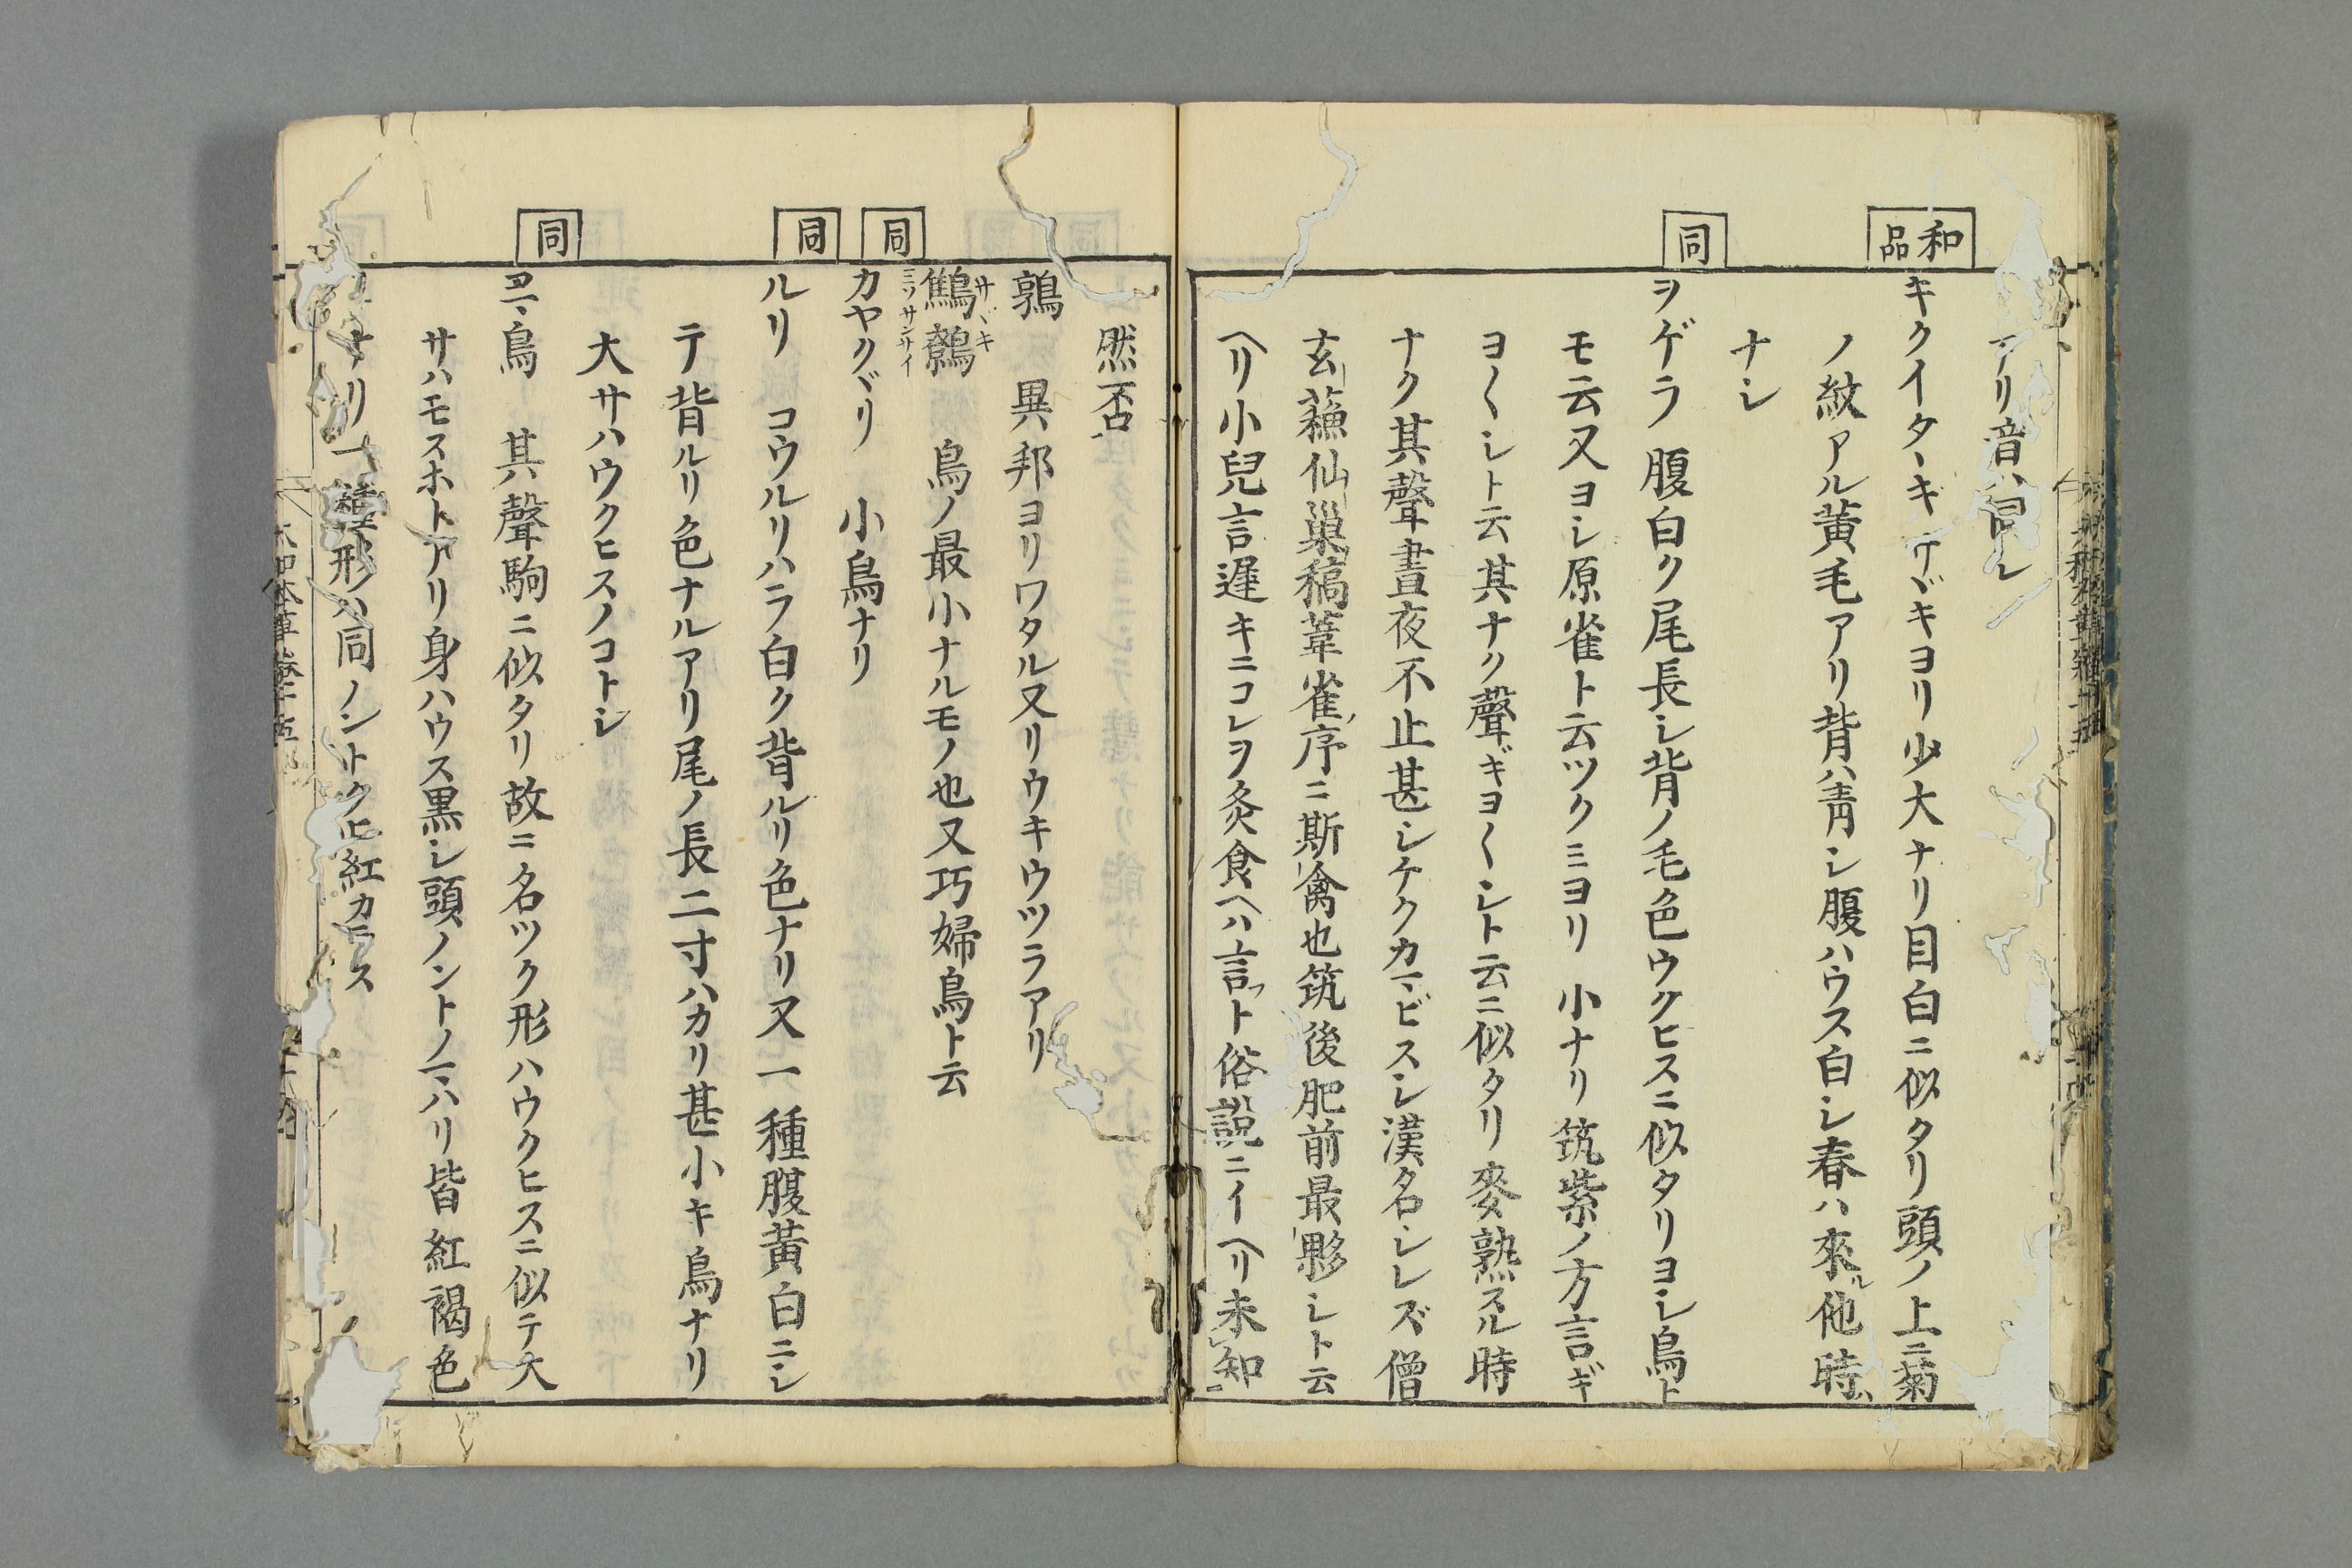 アリ音ハ同シ
和品
キクイタヽキ サヾキヨリ少大ナリ目白ニ似タリ頭ノ上ニ菊
ノ紋アル黄毛アリ背ハ青シ腹ハウス白シ春ハ來ル他時ハ
ナシ
同
ヲゲラ 腹白ク尾長シ背ノ毛色ウグヒスニ似タリヨシ鳥ト
モ云又ヨシ原雀ト云ツクミヨリ小ナリ筑紫ノ方言ギ
ヨ〱シト云其ナク聲ギヨ〱シト云ニ似タリ麥熟スル時
ナク其聲晝夜不止甚シケクカマビスシ漢名シレズ僧
玄蘓仙巢稿葦雀序ニ斯禽也筑後肥前最夥シト云
ヘリ小兒言遅キニコレヲ灸食ヘハ言フト俗説ニイヘリ未知
然否
鶉 異邦ヨリワタル又リウキウツラアリ
鷦鷯 鳥ノ最小ナルモノ也又巧婦鳥ト云
サヾキ
ミソサンサイ
同
カヤクヾリ 小鳥ナリ
同
ルリ コウルリハラ白ク背ルリ色ナリ又一種腹黄白ニシ
テ背ルリ色ナルアリ尾ノ長二寸ハカリ甚小キ鳥ナリ
大サハウクヒスノコトシ
同
コマ鳥 其聲駒ニ似タリ故ニ名ツク形ハウクヒスニ似テ大
サハモスホトアリ身ハウス黒シ頭ノントノマハリ皆紅褐色
ナリ一種形ハ同ノントクヒ紅カヒス
大和本草卷十五